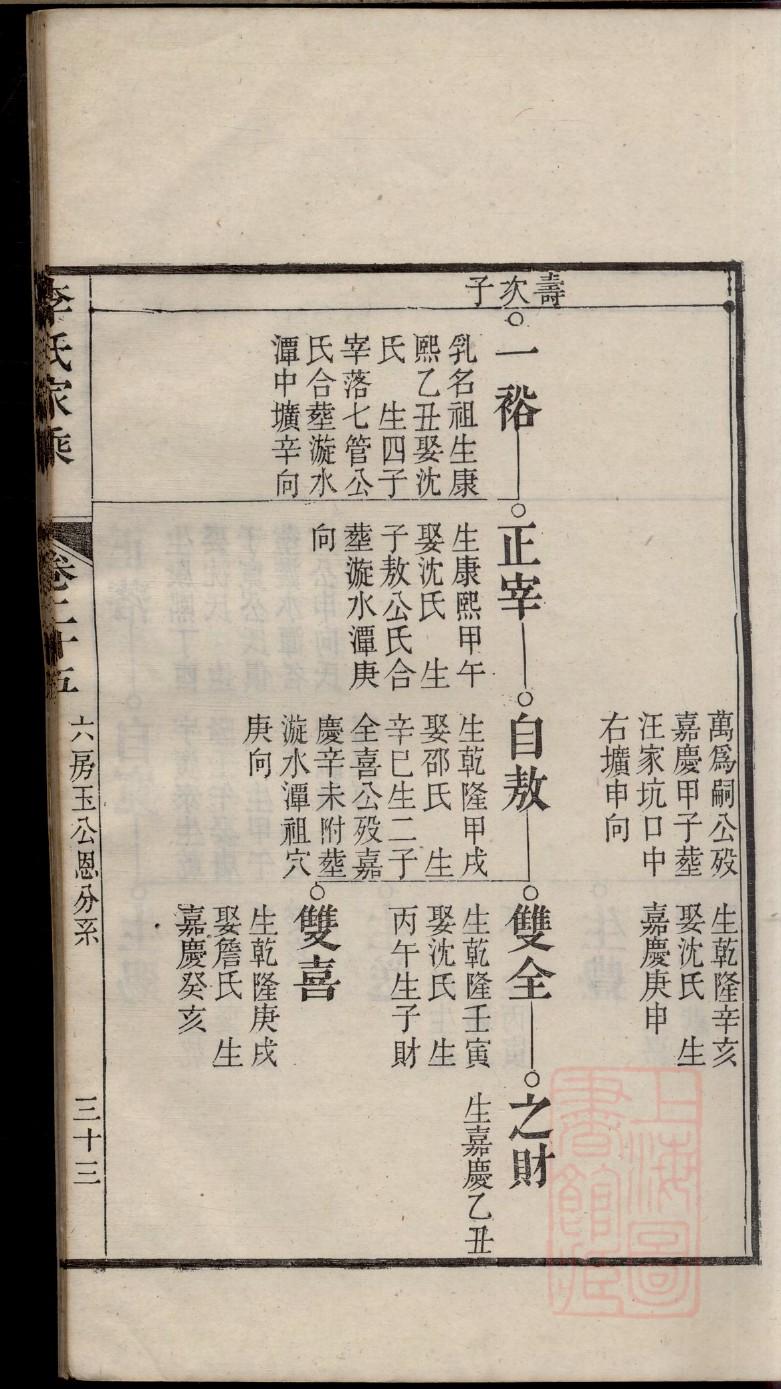 萬爲嗣公殁
嘉慶甲子塟
汪家坑口中
右壙申向
生乾隆辛亥
娶沈氏　生
嘉慶庚申
壽次子
一裕
乳名祖生康
熙乙丑娶沈
氏　生四子
宰落七管公
氏合塟漩水
潭中壙辛向
正宰
生康熙甲午
娶沈氏　生
子敖公氏合
塟漩水潭庚
向
自敖
生乾隆甲戌
娶邵氏　生
辛巳生二子
全喜公殁嘉
慶辛未附塟
漩水潭祖穴
庚向
雙全
生乾隆壬寅
娶沈氏　生
丙午生子財
之財
生嘉慶乙丑
雙喜
生乾隆庚戌
娶詹氏　生
嘉慶癸亥
李氏家乘
卷二十五
六房玉公恩分系
三十三
上海圖
書館藏